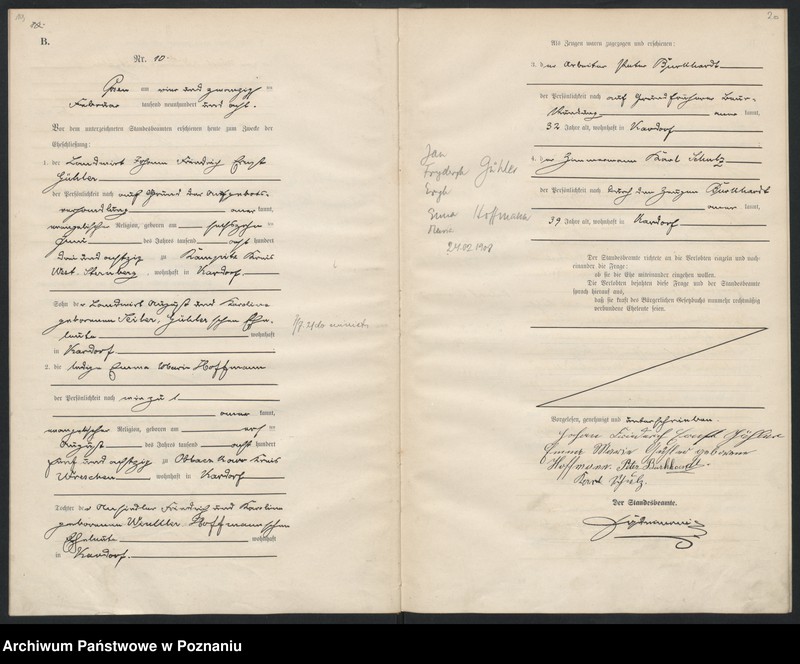 B.
Nr. 10.
Posen am vier und zwanzigsten
Februar tausend neunhundert und acht.
Vor dem unterzeichneten Standesbeamten erschienen heute zum Zwecke der
Eheschließung:
1. der Landwirt Johann Friedrich Ernst
Gühler
der Persönlichkeit nach auf Grund der Aufgebots-
verhandlung kannt,
evangelischer Religion, geboren am sechszehnten
Juni des Jahres tausend acht hundert
drei und achtzig zu Kreis
West-Sternberg, wohnhaft in Kardorf
Sohn des Landwirt August und Karoline
geborenen Gühler'schen Ehe-
leute wohnhaft
in Kardorf
2. die ledige Emma Marie Hoffmann
der Persönlichkeit nach wie zu 1
kannt,
evangelischer Religion, geboren am
August des Jahres tausend acht hundert
fünf und achtzig zu Kreis
Wreschen wohnhaft in Kardorf
Tochter der Ansiedler Friedrich und Karoline
geborenen Hoffmann'schen
Eheleute wohnhaft
in Kardorf.
Als Zeugen waren zugezogen und erschienen:
3. der Arbeiter Peter Burkhardt
der Persönlichkeit nach auf Grund früherer Beur-
kundung kannt,
32 Jahre alt, wohnhaft in Kardorf
4. der Zimmermann Karl Schulz
der Persönlichkeit nach durch den Zeugen Burkhardt
kannt,
39 Jahre alt, wohnhaft in Kardorf
Jan
Frydryk Gühler
Emma Hoffmann
Maria
24.02.1908
Der Standesbeamte richtete an die Verlobten einzeln und nach-
einander die Frage:
ob sie die Ehe miteinander eingehen wollen.
Die Verlobten bejahten diese Frage und der Standesbeamte
sprach hierauf aus,
daß sie kraft des Bürgerlichen Gesetzbuchs nunmehr rechtmäßig
verbundene Eheleute seien.
Vorgelesen, genehmigt und unterschrieben.
Johann Friedrich Ernst Gühler
Emma Marie Gühler geborene
Hoffmann. Peter Burkhardt.
Karl Schulz.
Der Standesbeamte.
Archiwum Państwowe w Poznaniu